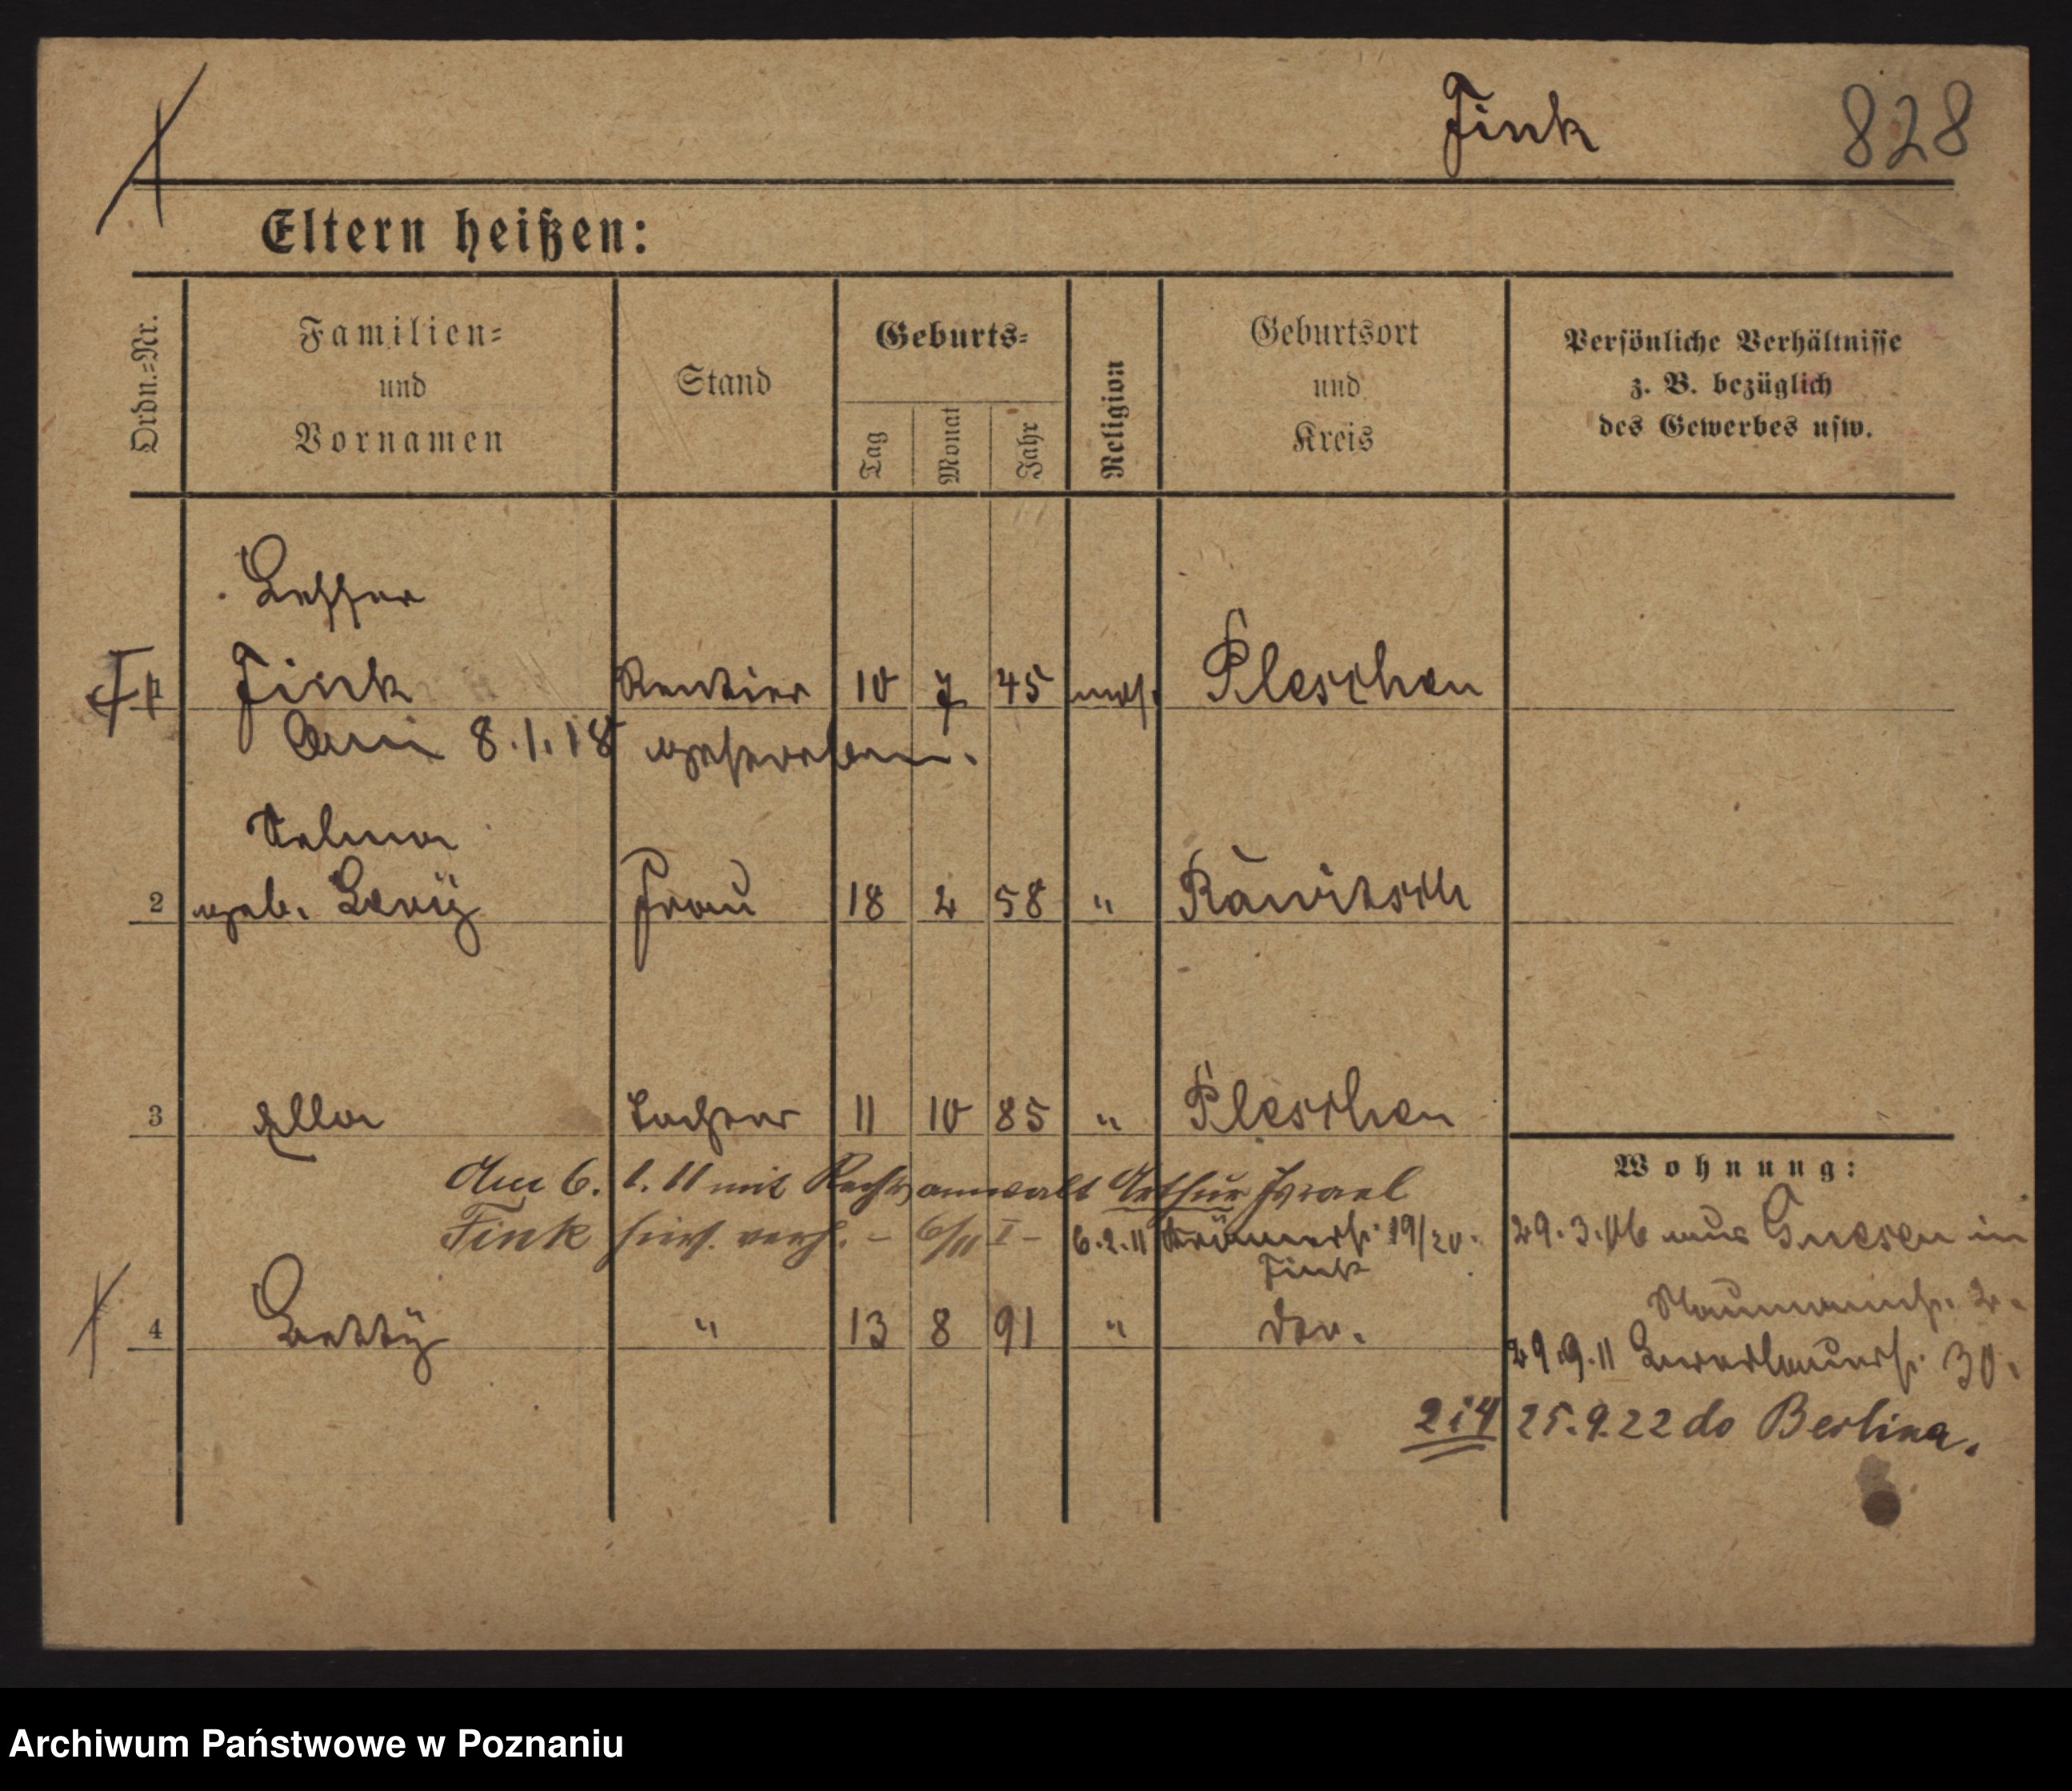 Fink 828
Eltern heißen:
Ordn.-Nr.
Familien-
und
Vornamen
Stand
Geburts-
Tag
Monat
Jahr
Religion
Geburtsort
und
Kreis
Persönliche Verhältnisse
z. B. bezüglich
des Gewerbes usw.
Lesser
1 Fink Rentier 10 7 45 mos. Pleschen
Am 8.1.18 gestorben.
Selma
2 geb. Levÿ Frau 18 2 58 " Rawitsch
3 Ella Tochter 11 10 85 " Pleschen
Wohnung:
Am 6. 1. 11 mit Rechtsanwalt Arthur Israel
Fink hier verh. - 6/II I - 6.2.11 19/20.
Fink
29.3.06 aus Gnesen in
Naumannstr. 2.
4 Bettÿ " 13 8 91 " do.
29.9.11 30.
2 i 4 25.9.22 do Berlina.
Archiwum Państwowe w Poznaniu